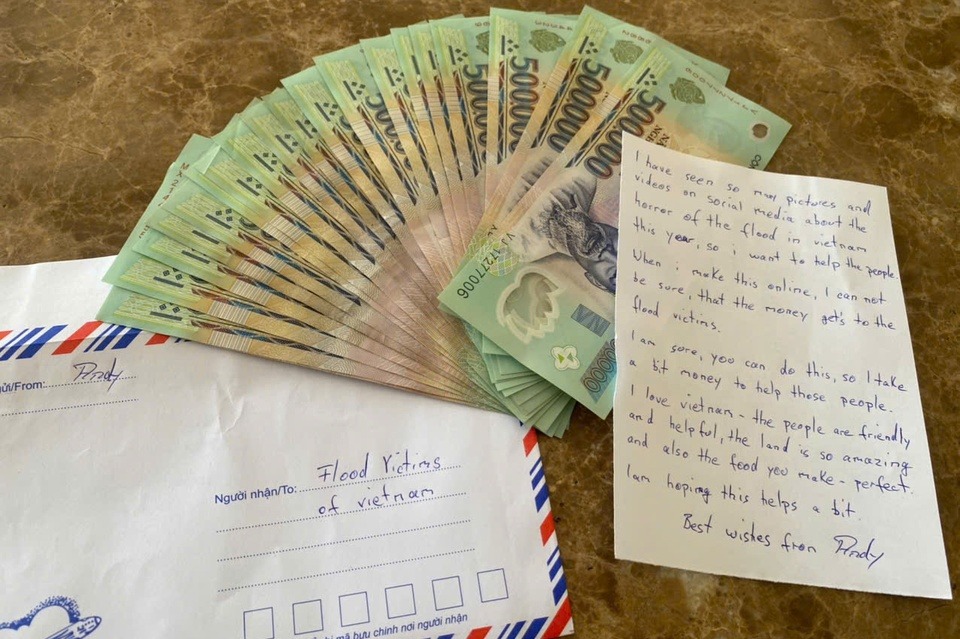 500000
500000
500000
500000
500000
500000
VN
I have seen so many pictures and
videos on social media about the
horror of the flood in vietnam
this year, so i want to help the people
When i make this online, I can not
be sure, that the money get's to the
flood victims.
I am sure, you can do this, so I take
a bit money to help those people.
I love vietnam - the people are friendly
and helpful, the land is so amazing
and also the food you make - perfect.
I am hoping this helps a bit.
Best wishes from Andy
ửi/From: Andy
Người nhận/To: Flood Victims
of vietnam
mã bưu chính nơi người nhận